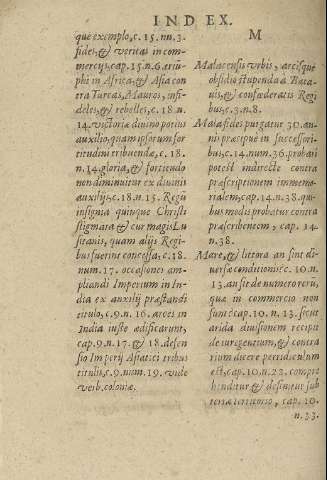 INDEX.
que exemplo, c. 15. nn. 3.
fides, & veritas in com-
mercijs, cap. 15. n. 6. triũ-
phi in Africa, & Asia con
tra Turcas, Mauros, infi-
deles, & rebelles, c. 18. n.
14. victoriæ diuino potius
auxilio, quam ipsorum for
titudini tribuendæ, c. 18.
n. 14. gloria, & fortitudo
non diminuitur ex diuinis
auxilijs, c. 18. n. 15. Regũ
insignia quinque Christi
stigmata & cur magis Lu
sitanis, quam alijs Regi-
bus fuerint concessa, c. 18.
num. 17. occasiones am-
pliandi Imperium in In-
dia ex auxilij præstandi
titulo, c. 9. n. 16. arces in
India iuste ædificarunt,
cap. 9. n. 17. & 18. defen
sio Imperij Asiatici tribus
titulis, c. 9. num. 19. vide
verb. coloniæ.
M
Malacensis vrbis, arcisque
obsidio stupenda à Bata-
uis, & confœderatis Regi
bus, c. 3. n. 8.
Mala fides purgatur 30. an-
nis præcipuè in successori-
bus, c. 14. num. 36. probari
potest indirecte contra
præscriptionem immemo-
rialem, cap. 14. n. 38. qui-
bus modis probatur contra
præscribentem, cap. 14.
n. 38.
Mare, & littora an sint di-
uersæ conditionis c. 10. n.
13. an sit de numero rerũ,
quæ in commercio non
sunt c. cap. 10. n. 13. sicut
arida diuisionem recipit
de iure gentium, & contra
rium dicere periculosum
est, cap. 10. n. 22. compre
henditur & definitur sub
terræ territorio, cap. 10.
n. 33.